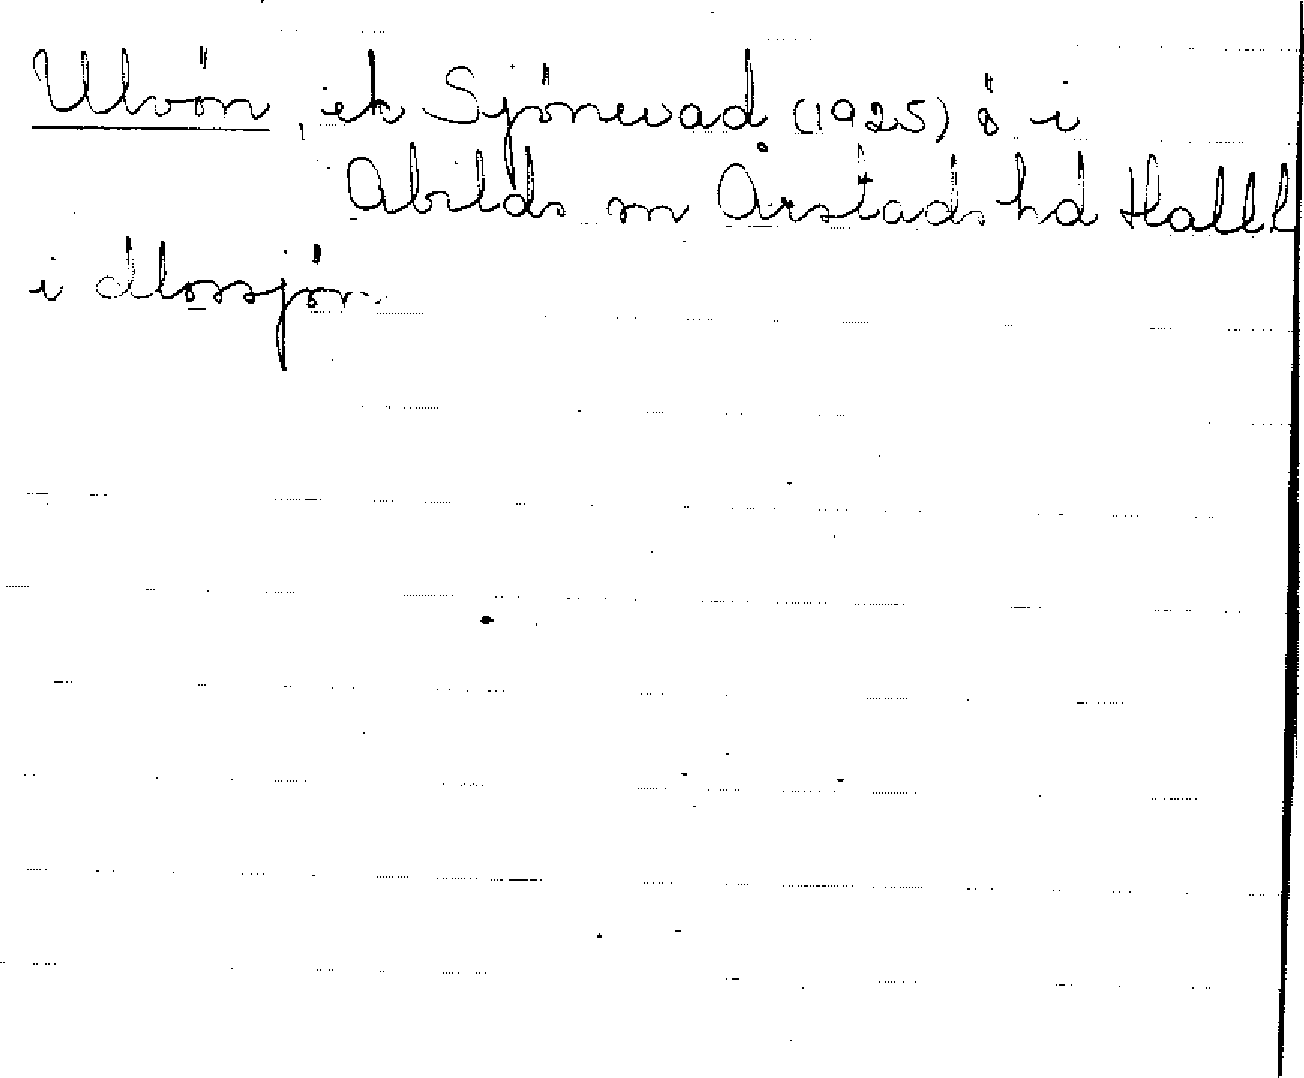 Ulvön, ek Sjönevad (1925) ö i
Abilds sn Årstads hd Hall L
i Mossjön.